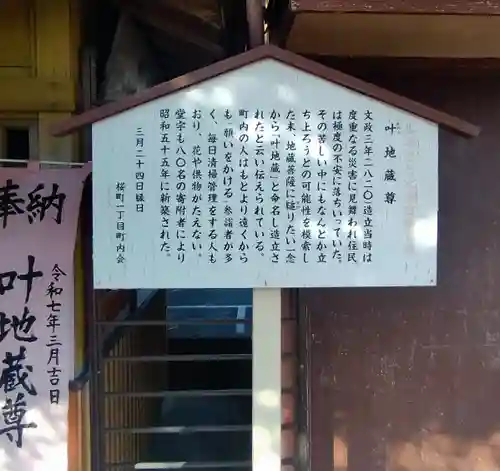 叶地蔵尊
文政三年(一八二〇)造立当時は
度重なる災害に見舞われ住民
は極度の不安に落ちいっていた。
その苦しい中にもなんとか立
ち上ろうとの可能性を模索し
た末、地蔵菩薩に縋りたい一念
から「叶地蔵」と命名し造立さ
れたと云い伝えられている。
町内の人はもとより遠くから
も「願いをかける」参詣者が多
く、毎日清掃管理をする人も
おり、花や供物がたえない。
堂宇も八〇名の寄附者により
昭和五十五年に新築された。
三月二十四日縁日
桜町一丁目町内会
奉納
叶地蔵尊
令和七年三月吉日